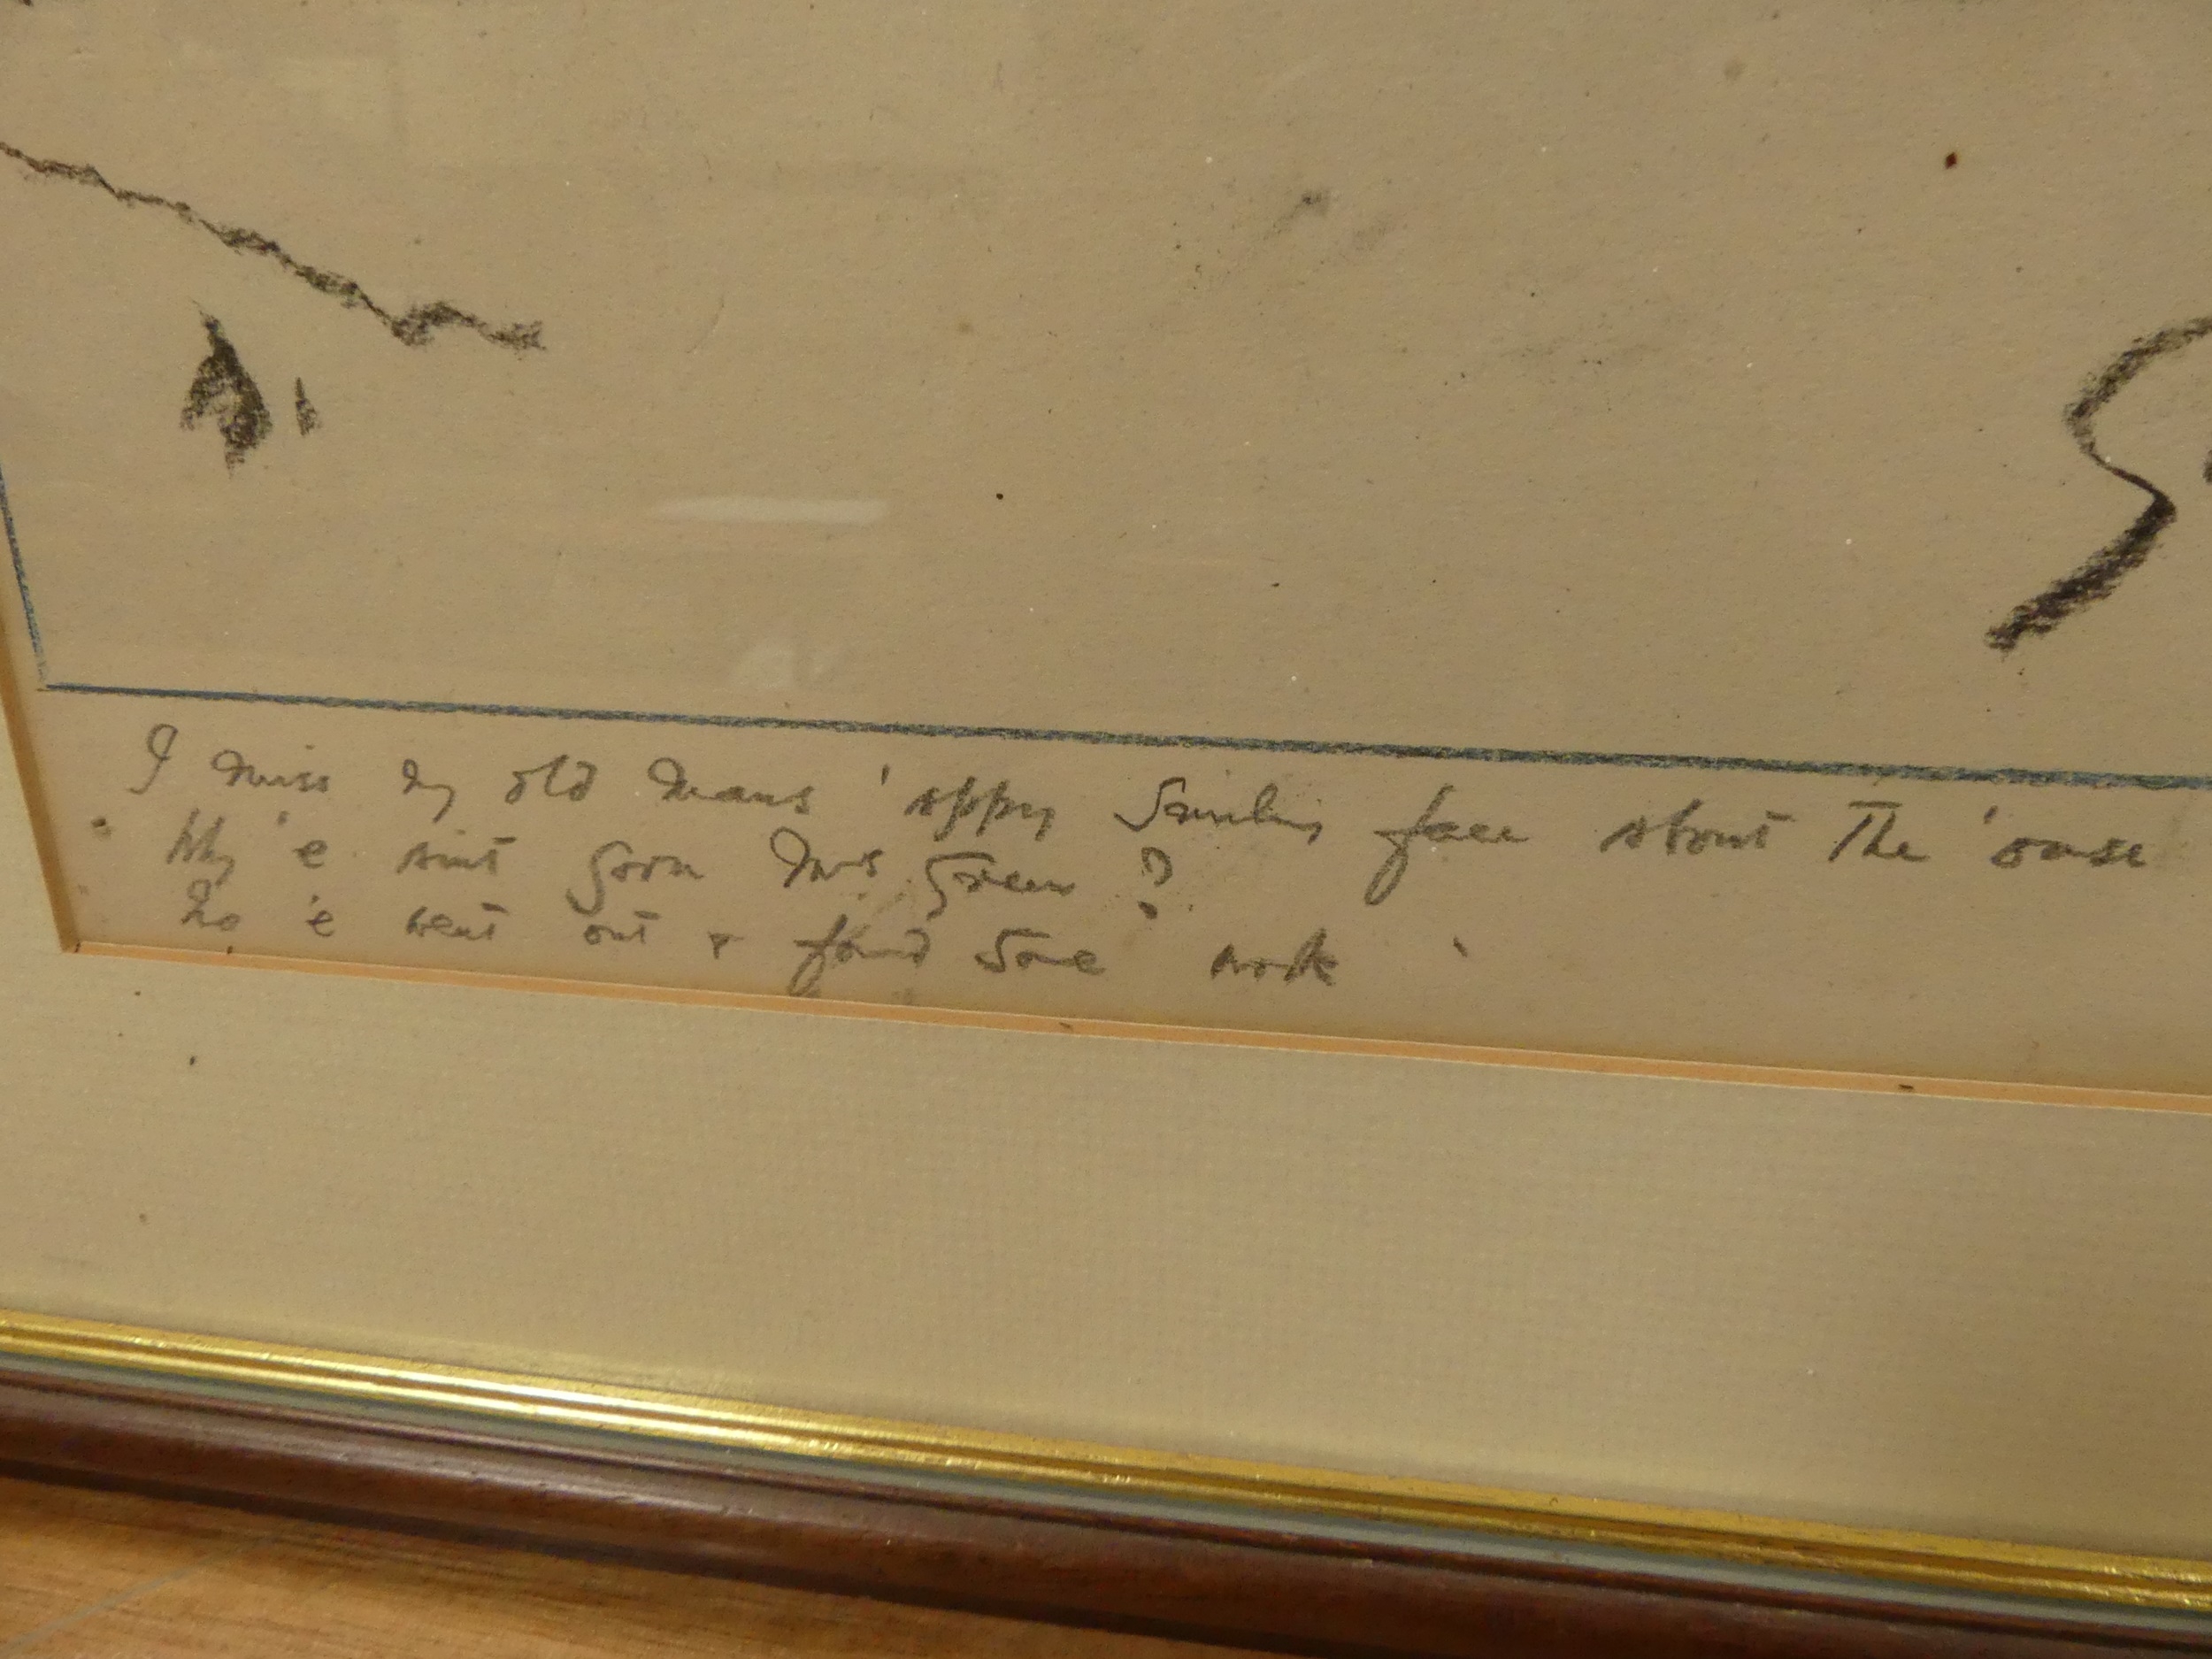 I miss my old mans 'appy smiling face about the 'ouse
Why 'e aint gorn Mrs Green ?
No 'e went out & found some work